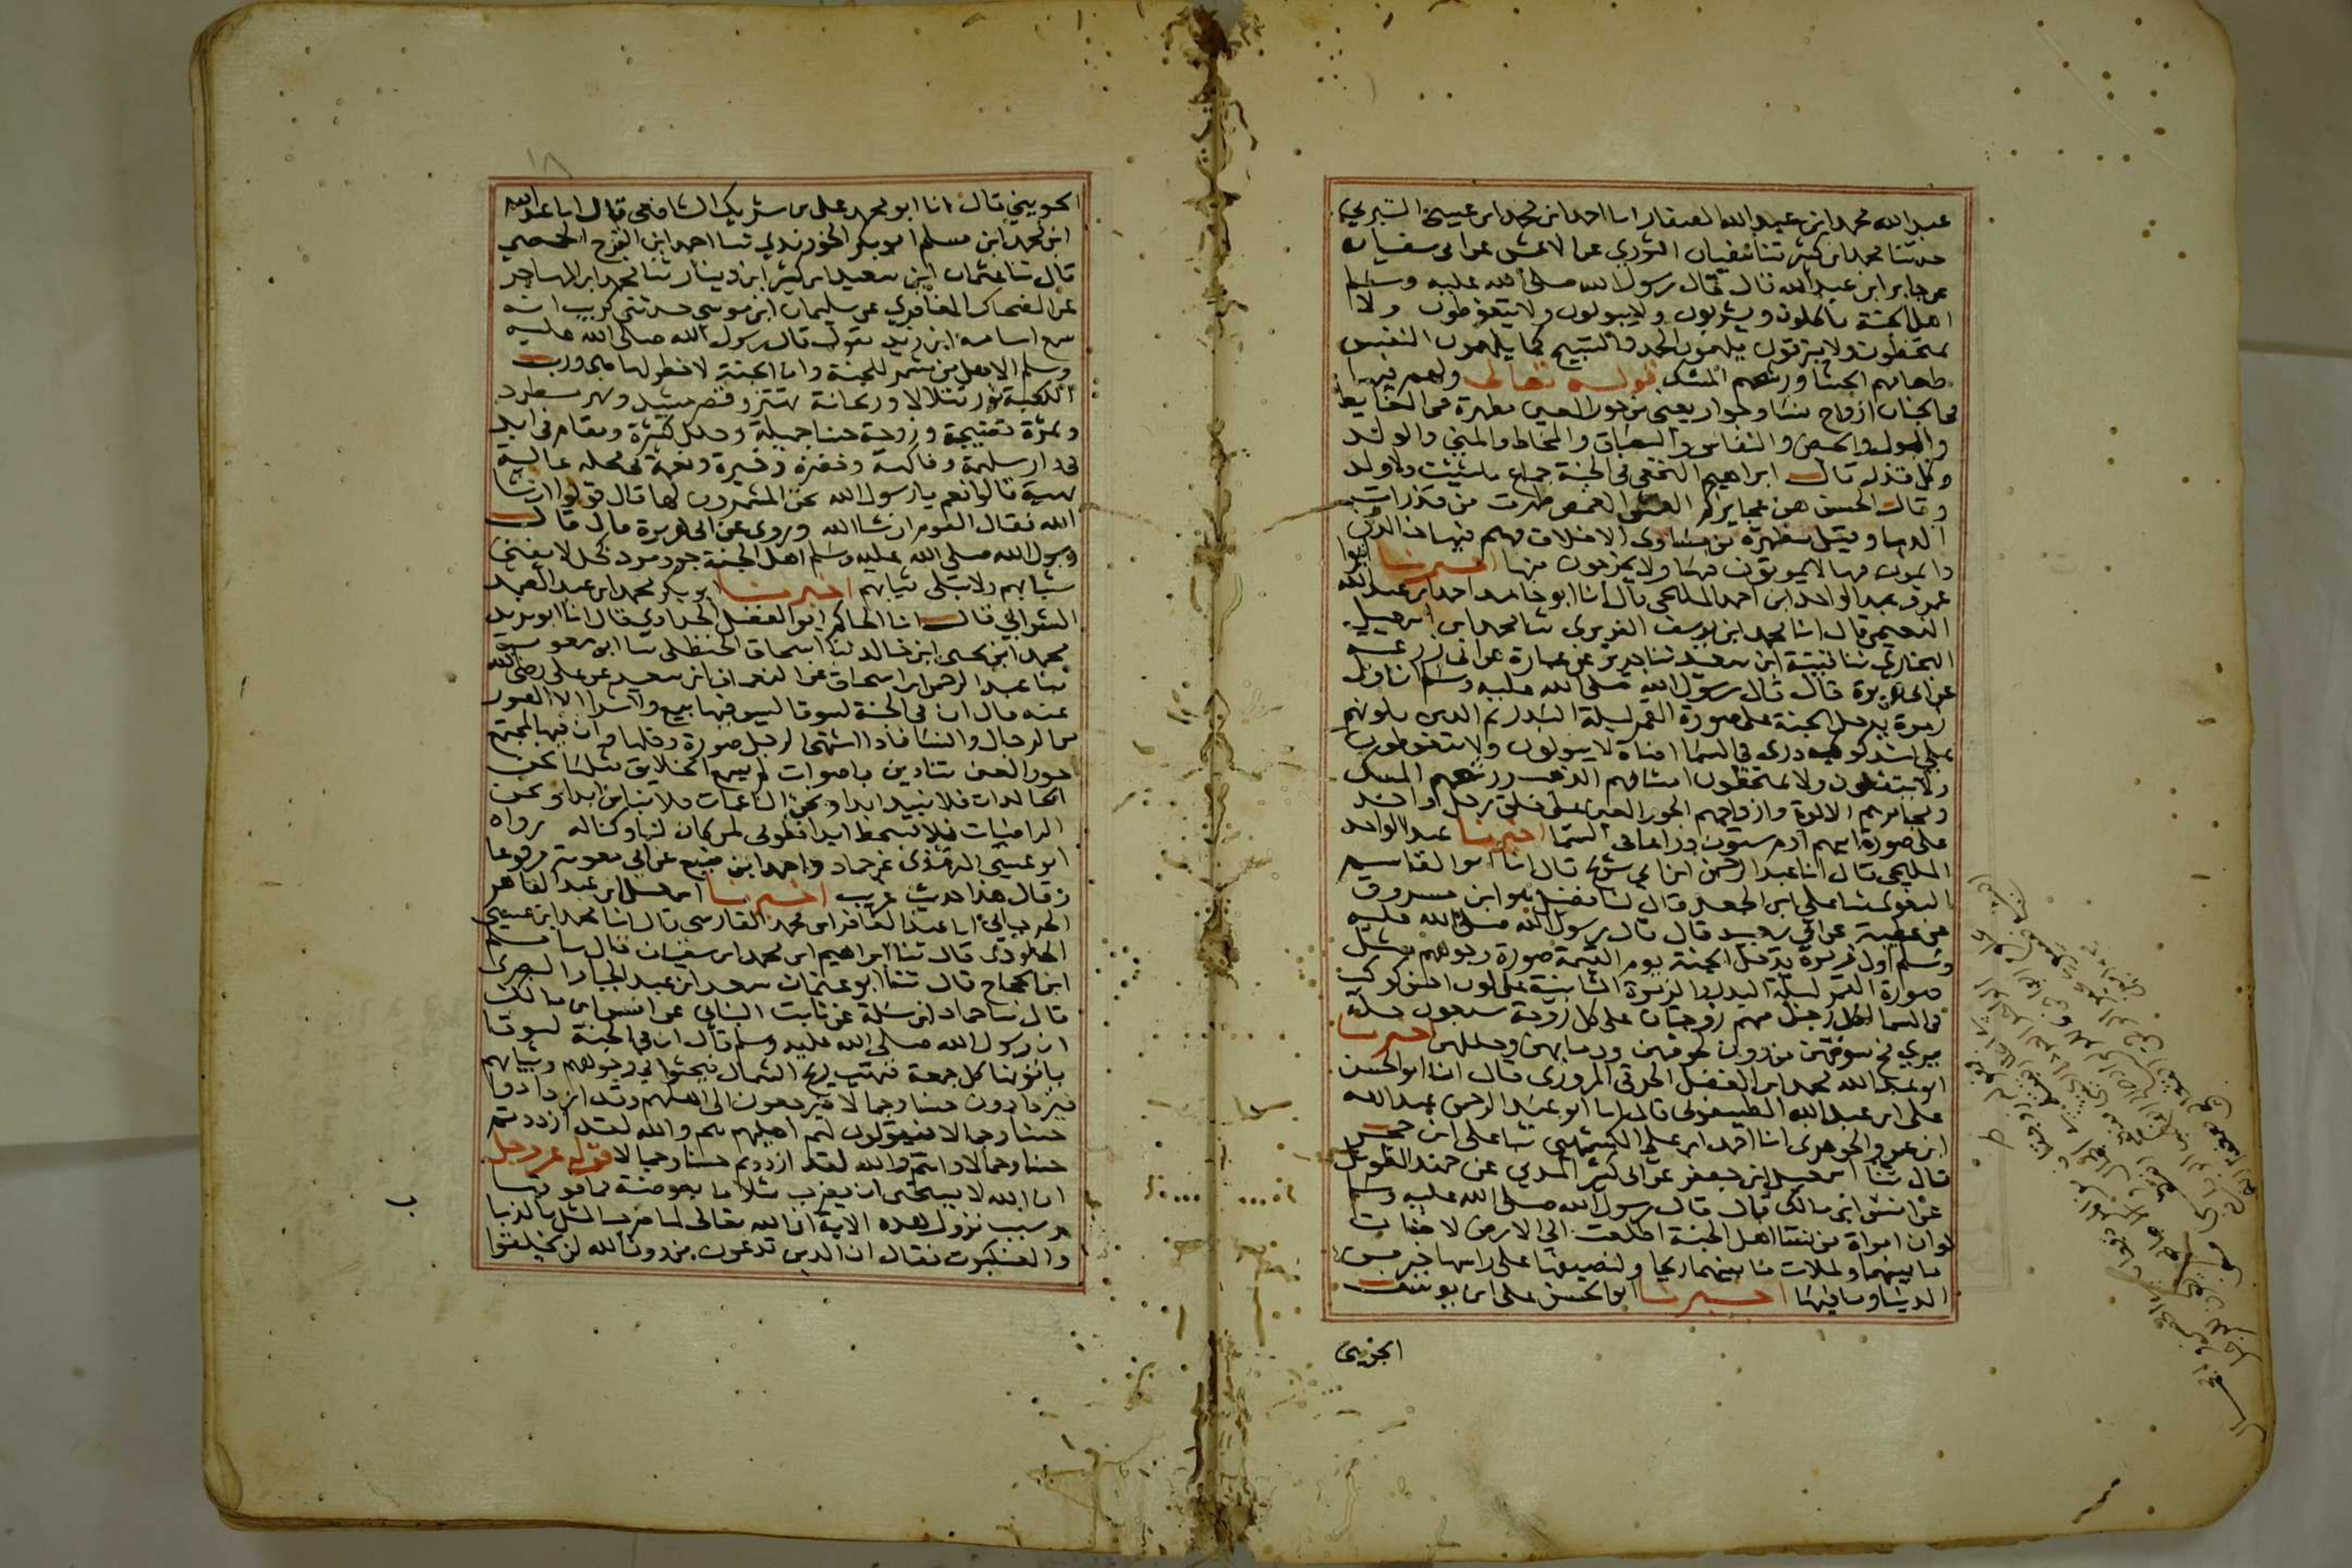 عبد الله محمد ابن عبد الله الصفار انا احمد ابن محمد ابن عيسى البرتي
حدثنا محمد ابن كثير ثنا سفيان الثوري عن الاعمش عن ابي سفيان
عن جابر ابن عبد الله قال قال رسول الله صلى الله عليه وسلم
اهل الجنة ياكلون ويشربون ولا يبولون ولا يتغوطون ولا
يمتخطون ولا يبزقون يلهمون الحمد والتسبيح كما يلهمون النفس
طعامهم الجشا ورشحهم المسك قوله تعالى ولهم فيها
في الجنان ازواج نسا وجوار يعني من حور العين مطهرة من الغايط
والبول والحيض والنفاس والبصاق والمخاط والمني والولد
وكل قذر قال ابراهيم النخعي في الجنة جماع ما شئت ولا ولد
وقال الحسن هن عجايزكم العمش الغمص طهرت من قذرات
الدنيا وقيل مطهرة من مساوى الاخلاق وهم فيها خالدون
دايمون فيها لا يموتون فيها ولا يخرجون منها اخبرنا ابو
عمرو عبد الواحد ابن احمد المليحي قال انا ابو حامد احمد ابن عبد الله
النعيمي قال انا محمد ابن يوسف الفربري ثنا محمد ابن اسمعيل
البخاري ثنا قتيبة ابن سعيد ثنا جرير عن عمارة عن ابي زرعة
عن ابي هريرة قال قال رسول الله صلى الله عليه وسلم ان اول
زمرة يدخل الجنة على صورة القمر ليلة البدر ثم الذين يلونهم
على اشد كوكب دري في السما اضاة لا يبولون ولا يتغوطون
ولا يتفلون ولا يمتخطون امشاطهم الذهب ورشحهم المسك
ومجامرهم الالوة وازواجهم الحور العين على خلق رجل واحد
على صورة ابيهم ادم ستون ذراعا في السما اخبرنا عبد الواحد
المليحي قال انا عبد الرحمن ابن ابي شريح قال انا ابو القاسم
البغوي ثنا علي ابن الجعد قال ثنا فضيل هو ابن مرزوق
عن عطية عن ابي سعيد قال قال رسول الله صلى الله عليه
وسلم اول زمرة يدخل الجنة يوم القيمة صورة وجوههم مثل
صورة القمر ليلة البدر والزمرة الثانية على لون احسن كوكب
في السما لكل رجل منهم زوجتان على كل زوجة سبعون حلة
يرى مخ سوقهن من دون لحومهن ودمايهن وحللهن اخبرنا
ابو عبد الله محمد ابن الفضل الخرقي المروزي قال انا ابو الحسن
علي ابن عبد الله الطيسفوني قال انا ابو عبد الرحمن عبد الله
ابن عمر الجوهري انا احمد ابن علي الكشميهني ثنا علي ابن حجر
قال ثنا اسمعيل ابن جعفر عن ابي كثير المدني عن حميد الطويل
عن انس ابن مالك قال قال رسول الله صلى الله عليه وسلم
لو ان امراة من نسا اهل الجنة اطلعت الى الارض لاضات
ما بينهما ولملات ما بينهما ريحا ولنصيفها على راسها خير من
الدنيا وما فيها اخبرنا ابو الحسن علي ابن يوسف
الجويني
١٨
الجويني قال انا ابو محمد علي بن شريك الشافعي قال انا عبد الله
ابن محمد ابن مسلم ابو بكر الجوربذي ثنا احمد ابن الفرج الحمصي
قال ثنا عثمان ابن سعيد ابن كثير ابن دينار ثنا محمد ابن المهاجر
عن الضحاك المعافري عن سليمان ابن موسى حدثني كريب انه
سمع اسامة ابن زيد يقول قال رسول الله صلى الله عليه
وسلم الا هل من مشمر للجنة وان الجنة لا خطر لها هي ورب
الكعبة نور يتلالا وريحانة تهتز وقصر مشيد ونهر مطرد
وثمرة نضيجة وزوجة حسنا جميلة وحلل كثيرة ومقام في ابد
في دار سليمة وفاكهة وخضرة وحبرة ونعمة في محله عالية
بهية قالوا نعم يا رسول الله نحن المشمرون لها قال قولوا ان شا
الله فقال القوم ان شا الله وروي عن ابي هريرة قال قال
رسول الله صلى الله عليه وسلم اهل الجنة جرد مرد كحل لا يفنى
شبابهم ولا تبلى ثيابهم اخبرنا ابو بكر محمد ابن عبد الصمد
الترابي قال انا الحاكم ابو الفضل الحدادي قال انا ابو يزيد
محمد ابن يحيى ابن خالد ثنا اسحاق الحنظلي ثنا ابو معوية
ثنا عبد الرحمن ابن اسحاق عن النعمان ابن سعد عن علي رضي الله
عنه قال ان في الجنة لسوقا ليس فيها بيع ولا شرا الا الصور
من الرجال والنسا فاذا اشتهى الرجل صورة دخلها وان فيها لمجتمع
حور العين ينادين باصوات لم يسمع الخلايق مثلها نحن
الخالدات فلا نبيد ابدا ونحن الناعمات فلا نباس ابدا ونحن
الراضيات فلا نسخط ابدا فطوبى لمن كان لنا وكنا له رواه
ابو عيسى الترمذي عن هناد واحمد ابن منيع عن ابي معوية مرفوعا
وقال هذا حديث غريب اخبرنا اسمعيل ابن عبد القاهر
الجرجاني انا عبد الغافر ابن محمد الفارسي قال انا محمد ابن عيسى
الجلودي قال ثنا ابراهيم ابن محمد ابن سفيان قال ثنا مسلم
ابن الحجاج قال ثنا ابو عثمان سعيد ابن عبد الجبار البصري
قال ثنا حماد ابن سلمة عن ثابت البناني عن انس ابن مالك
ان رسول الله صلى الله عليه وسلم قال ان في الجنة لسوقا
ياتونها كل جمعة فتهب ريح الشمال فتحثوا في وجوههم وثيابهم
فيزدادون حسنا وجمالا فيرجعون الى اهليهم وقد ازدادوا
حسنا وجمالا فيقولون لهم اهليهم والله لقد ازددتم
حسنا وجمالا وانتم والله لقد ازددتم حسنا وجمالا قوله عز وجل
ان الله لا يستحي ان يضرب مثلا ما بعوضة فما فوقها
سبب نزول هذه الاية ان الله تعالى لما ضرب المثل بالذباب
والعنكبوت فقال ان الذين تدعون من دون الله لن يخلقوا